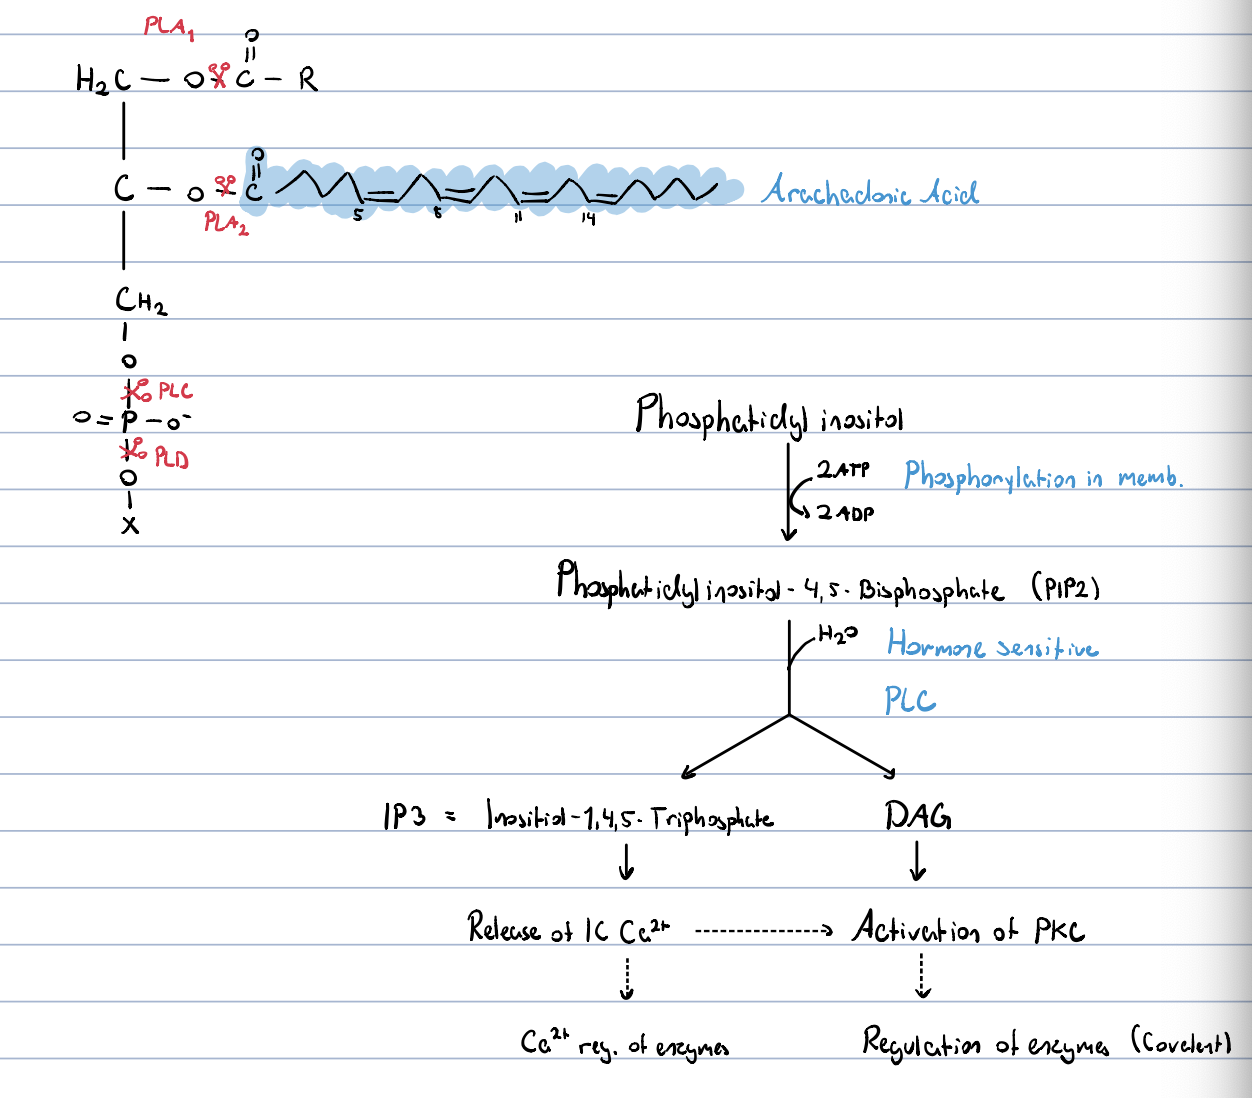 PLA1
O
H2C — O C — R
O
C — O C
Arachadonic Acid
5 8 11 14
PLA2
CH2
O
PLC
O = P — O-
PLD
O
X
Phosphatidyl inositol
2 ATP
Phosphorylation in memb.
2 ADP
Phosphatidyl inositol - 4,5 - Bisphosphate (PIP2)
H2O
Hormone sensitive
PLC
IP3 = Inositiol - 1,4,5 - Triphosphate
DAG
Release of IC Ca2+
Activation of PKC
Ca2+ reg. of enzymes
Regulation of enzymes (Covalent)